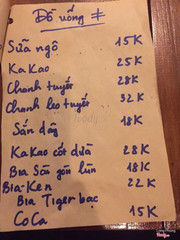 Đồ uống
Sữa ngô 15K
Ka Kao 25K
Chanh tuyết 28K
Chanh leo tuyết 32K
Sắn dây 18K
Ka Kao cốt dừa 28K
Bia Sài gòn lùn 18K
Bia-Ken 22K
Bia Tiger bạc
CoCa 15K